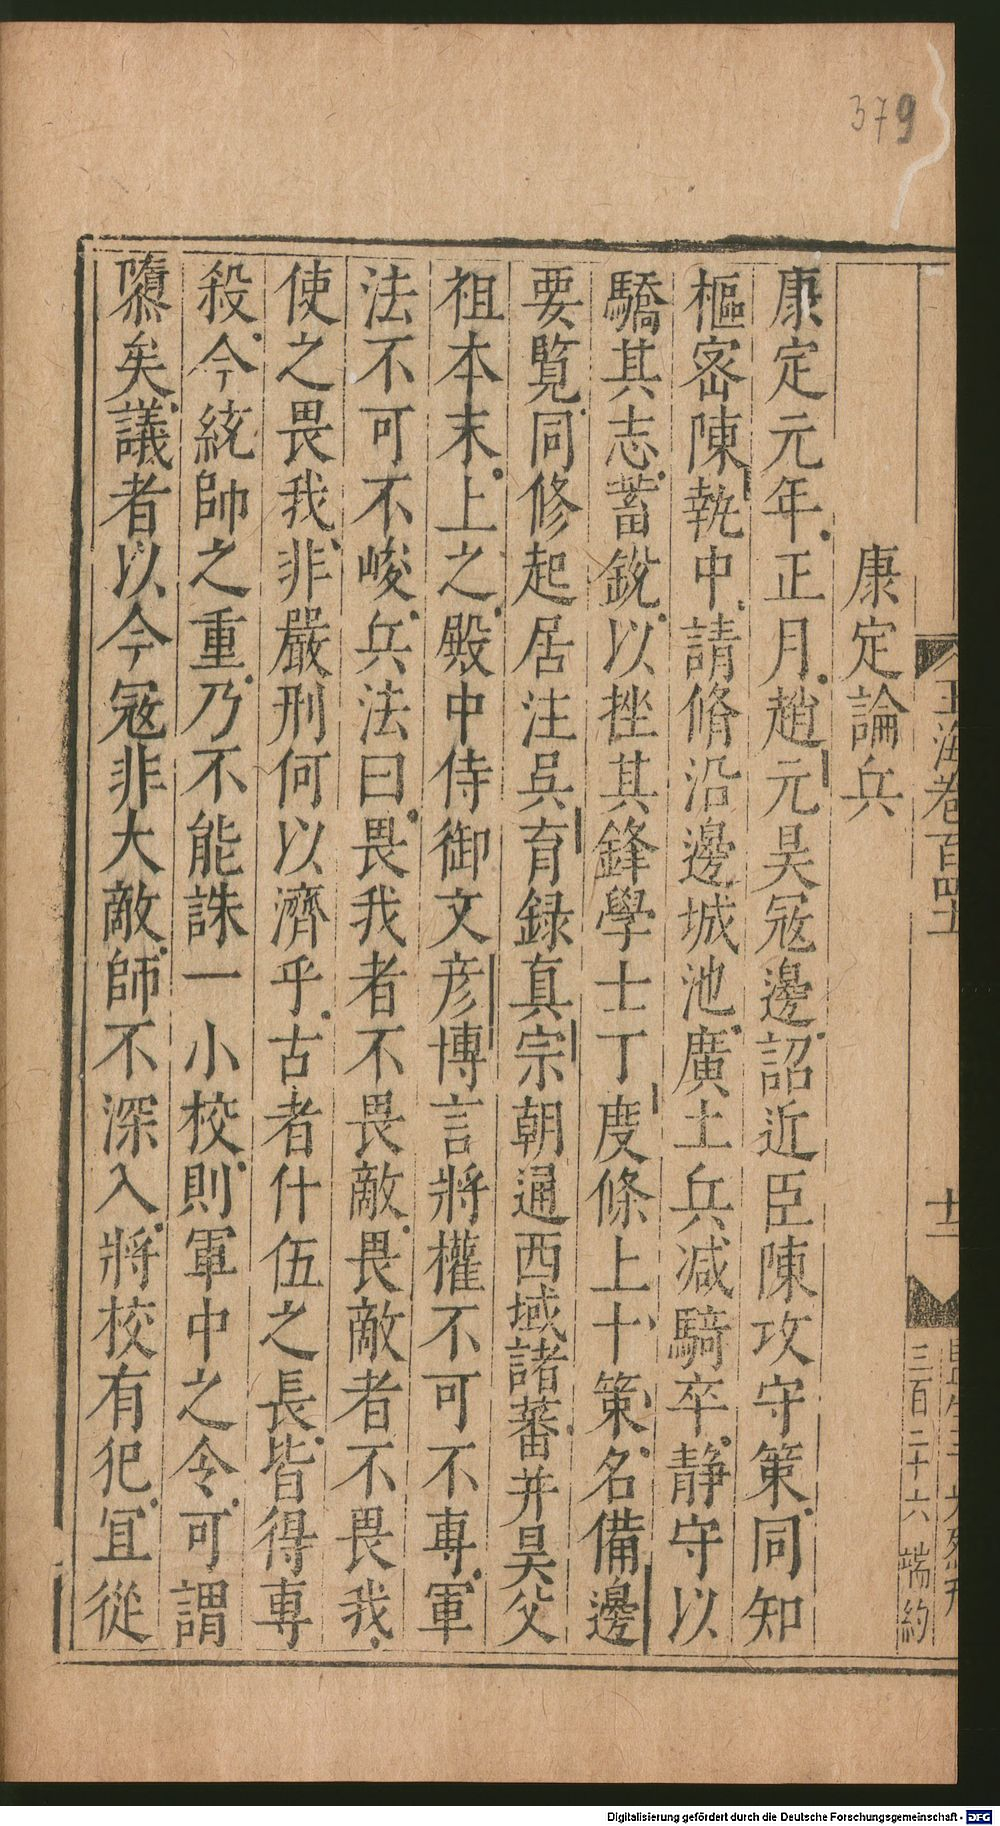 379
玉海卷百四五
十二
三百二十六
端約
康定論兵
康定元年正月趙元昊冦邊詔近臣陳攻守策同知
樞宻陳執中請脩沿邊城池廣土兵減騎卒静守以
驕其志蓄銳以挫其鋒學士丁度條上十策名備邊
要覧同修起居注吳育録真宗朝通西域諸蕃并昊父
祖本末上之殿中侍御文彦博言將權不可不專軍
法不可不峻兵法曰畏我者不畏敵畏敵者不畏我
使之畏我非嚴刑何以濟乎古者什伍之長皆得專
殺今統帥之重乃不能誅一小校則軍中之令可謂
隳矣議者以今冦非大敵師不深入將校有犯宜從
Digitalisierung gefördert durch die Deutsche Forschungsgemeinschaft - DFG